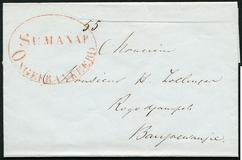 55
SUMANAP
ONGEFRANKEERD
A Monsieur
Monsieur H. Zollinger
Rogodjampie
Banjoewangie